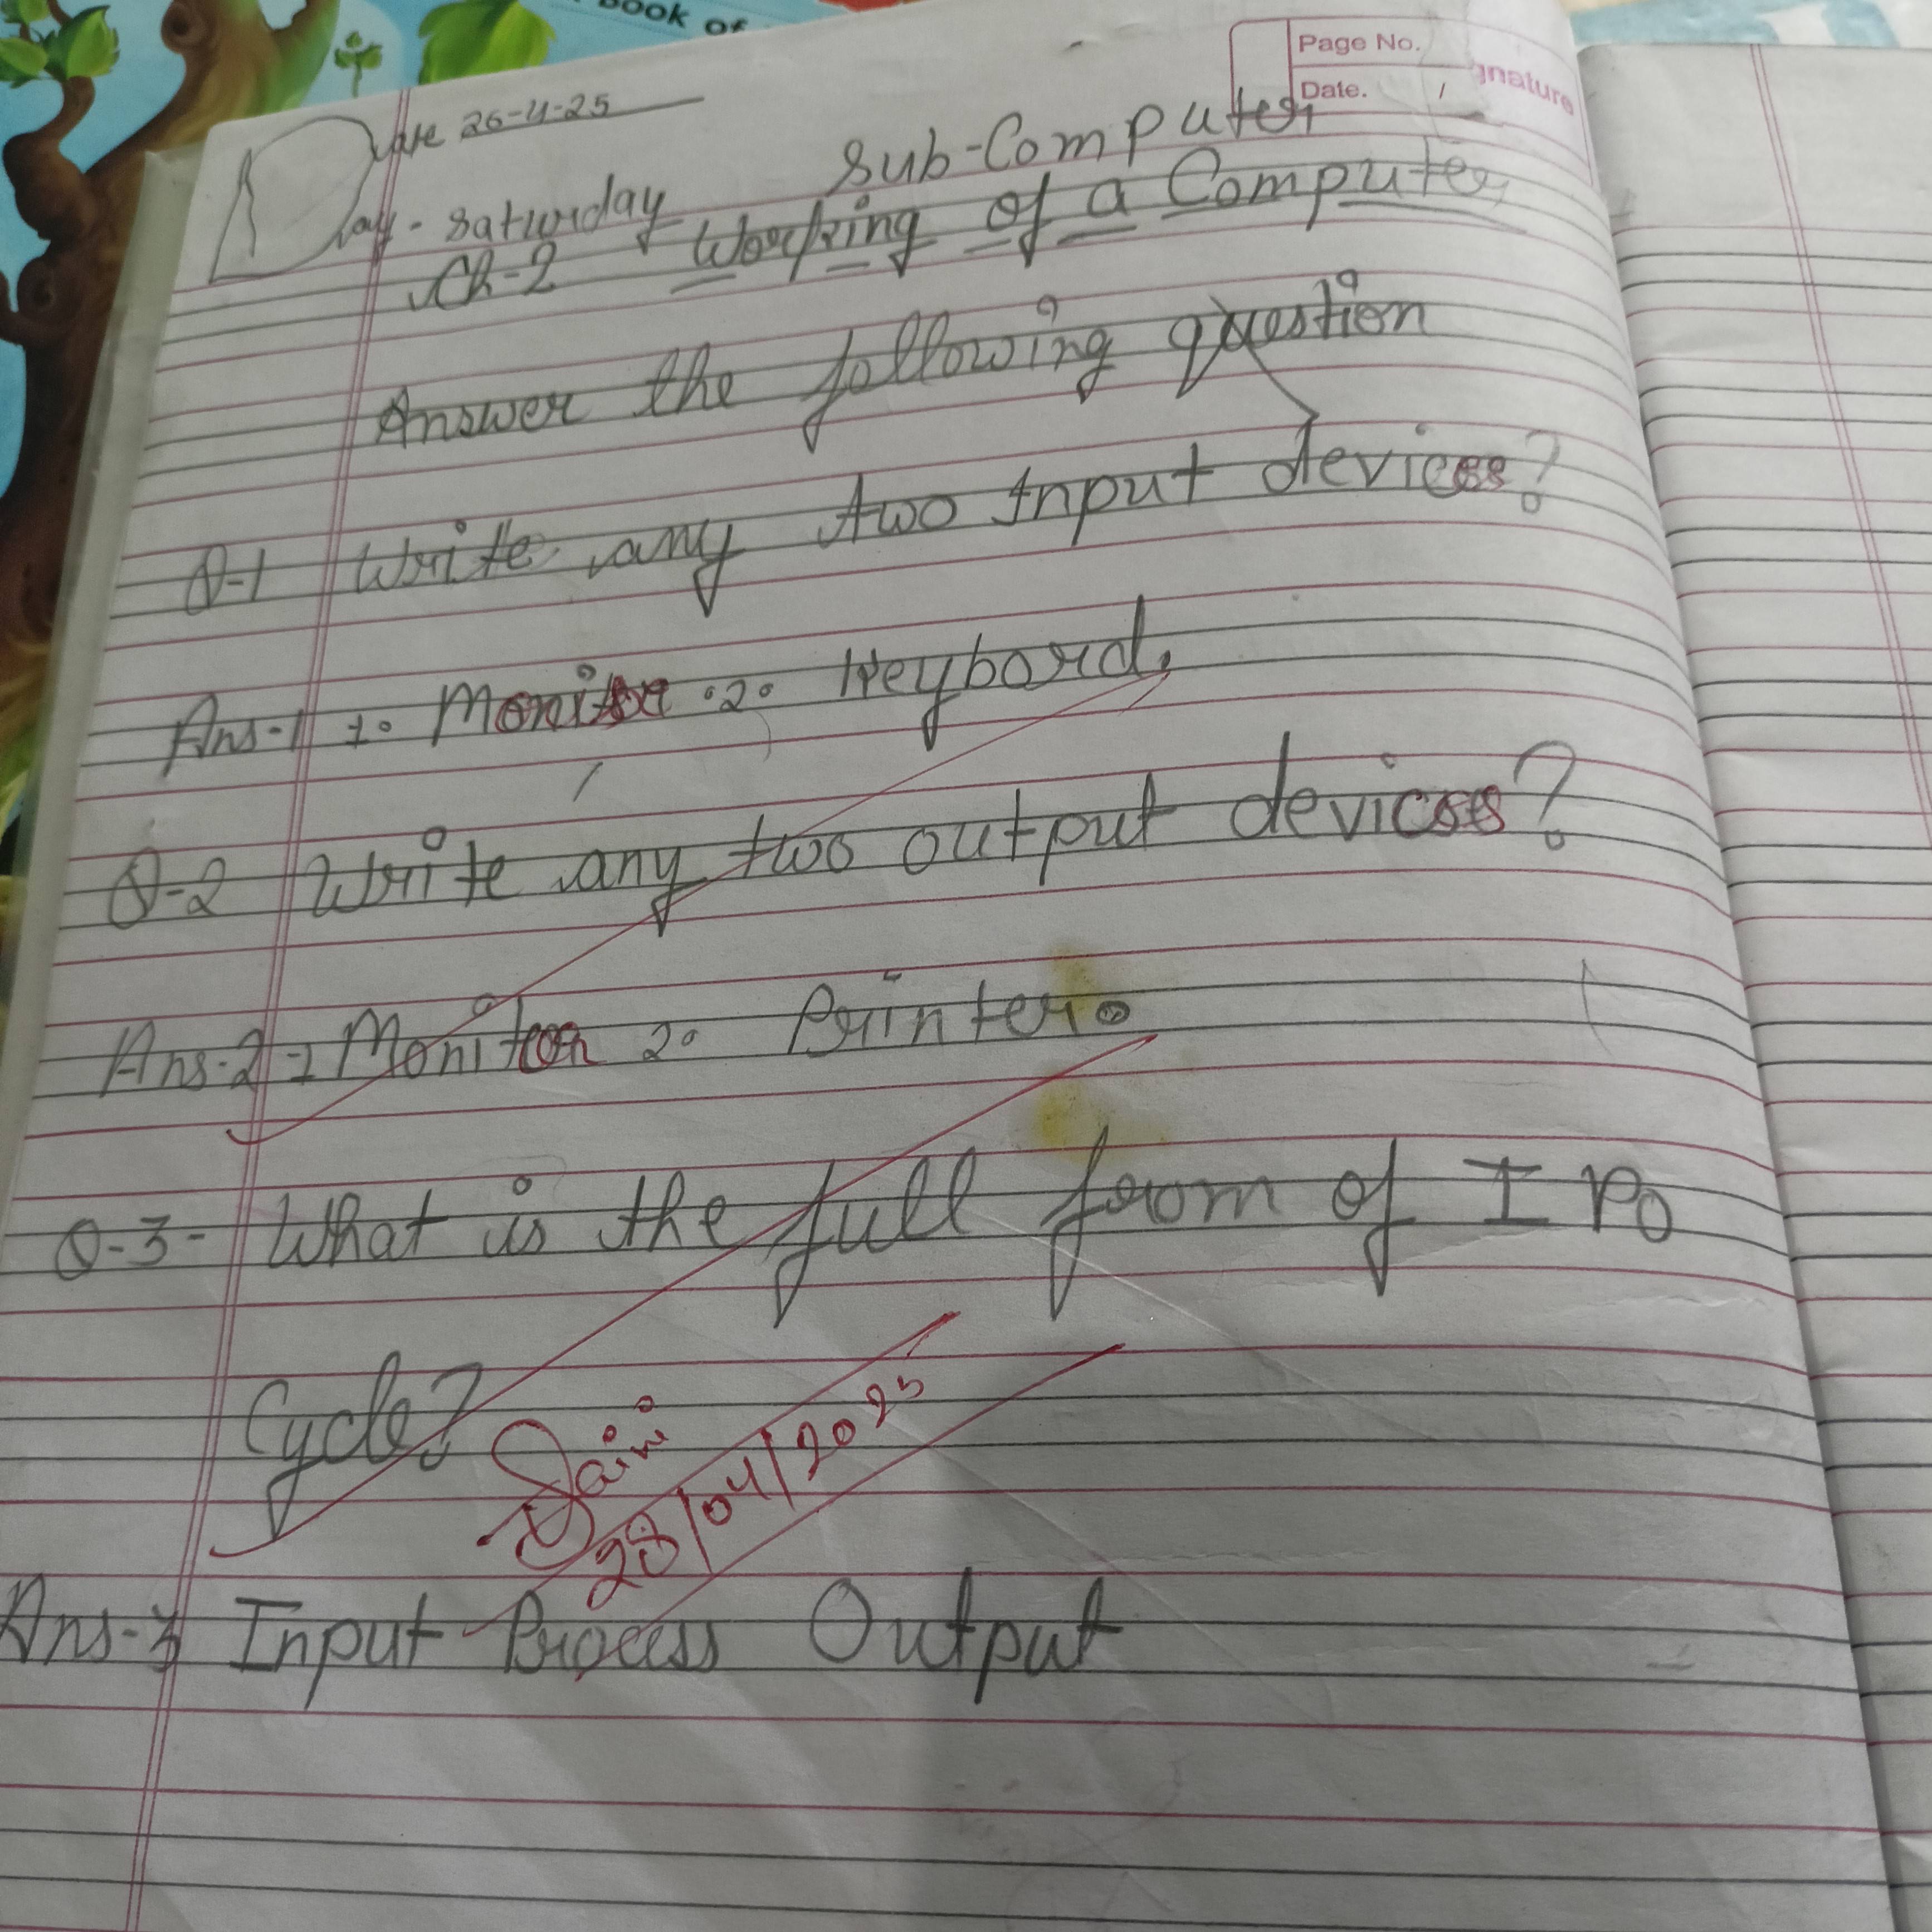 BOOK OF
Page No.
Date.
gnature
Date 26-4-25
Sub-Computer
Day-Saturday
Ch-2 Working of a Computer
Answer the following question
Q-1 Write any two Input devices?
Ans-1 1. Monitor 2. Keybord.
Q-2 Write any two output devices?
Ans-2 1 Monitor 2. Printer.
Q-3- What is the full from of I PO
Cycle?
28/04/2025
Ans-3 Input Process Output